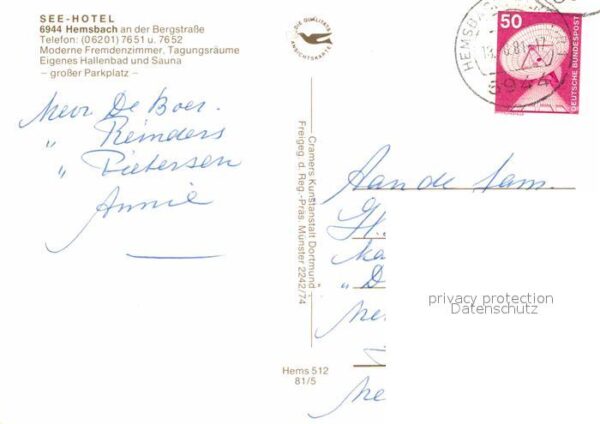 SEE-HOTEL
6944 Hemsbach an der Bergstraße
Telefon: (06201) 7651 u. 7652
Moderne Fremdenzimmer, Tagungsräume
Eigenes Hallenbad und Sauna
– großer Parkplatz –
DIE QUALITÄTS
ANSICHTSKARTE
HEMSBACH
81-17
6944
50
DEUTSCHE BUNDESPOST
Mevr. De Boer.
" Reinders
" Pietersen
Annie
Cramers Kunstanstalt Dortmund
Freigeg. d. Reg.-Präs. Münster 2242/74
Aan de fam.
"D
privacy protection
Datenschutz
Hems 512
81/5